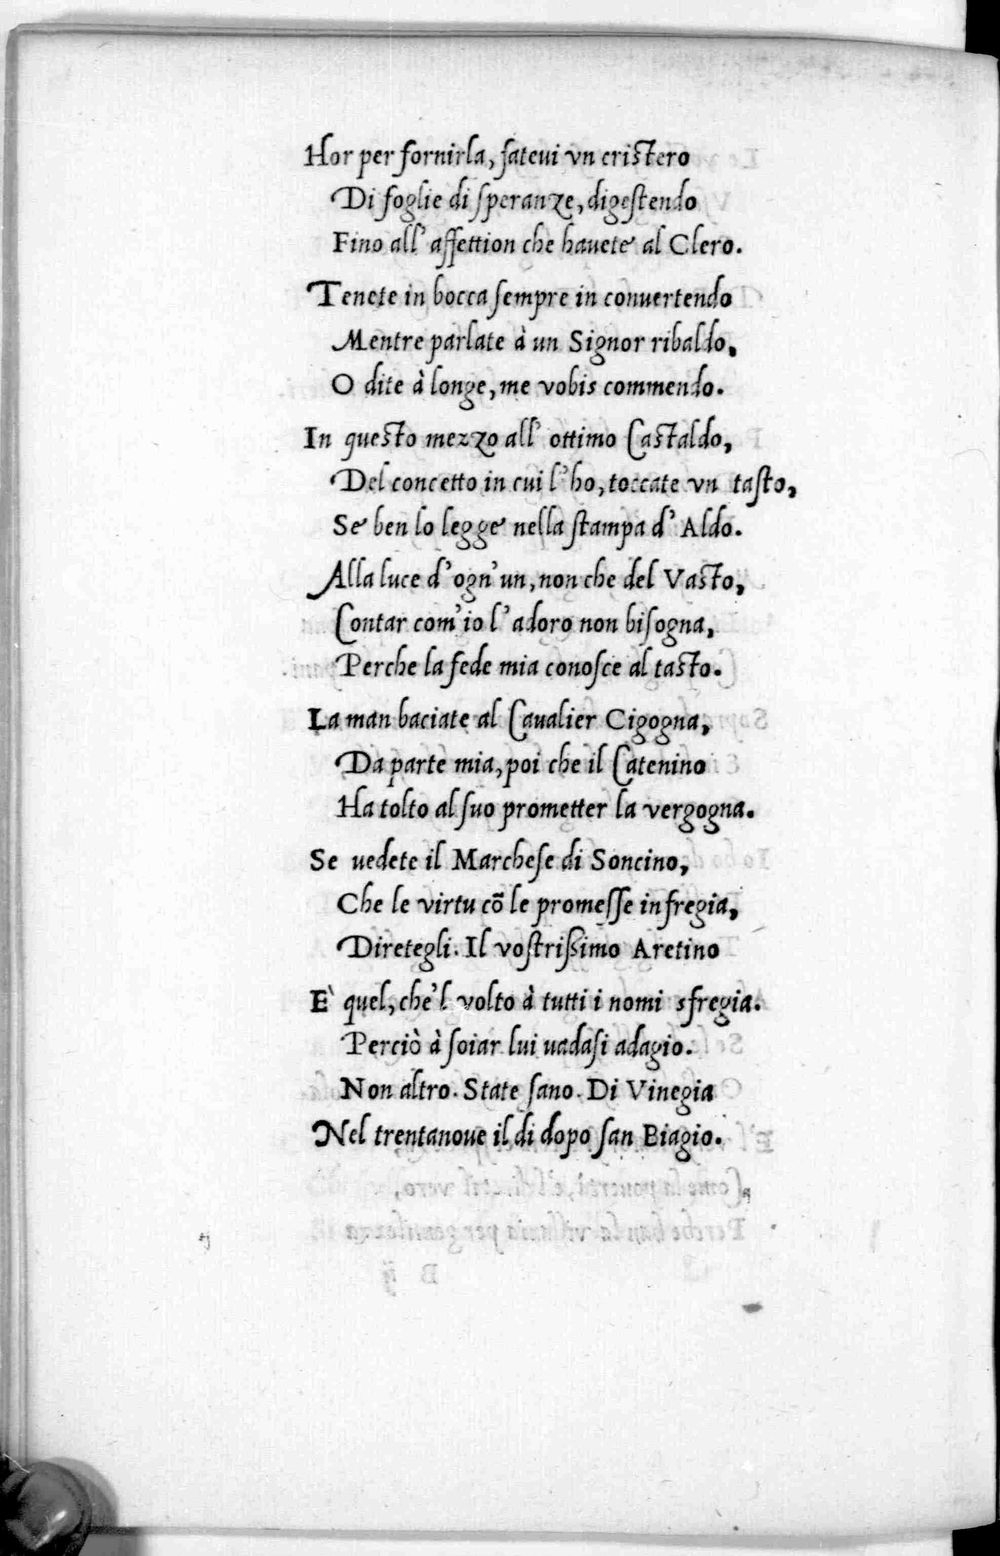 Hor per fornirla, fateui vn cristero
Di foglie di speranze, digestendo
Fino all'affettion che hauete al Clero.
Tenete in bocca sempre in conuertendo
Mentre parlate à un Signor ribaldo,
O dite à longe, me vobis commendo.
In questo mezzo all'ottimo Castaldo,
Del concetto in cui l'ho, toccate vn tasto,
Se ben lo legge nella stampa d'Aldo.
Alla luce d'ogn'un, non che del Vasto,
Contar com'io l'adoro non bisogna,
Perche la fede mia conosce al tasto.
La man baciate al Caualier Cigogna,
Da parte mia, poi che il Catenino
Ha tolto al suo prometter la vergogna.
Se uedete il Marchese di Soncino,
Che le virtu cõ le promesse infregia,
Diretegli. Il vostrissimo Aretino
E` quel, che'l volto à tutti i nomi sfregia.
Perciò à soiar lui uadasi adagio.
Non altro. State sano. Di Vinegia
Nel trentanoue il di dopo san Biagio.